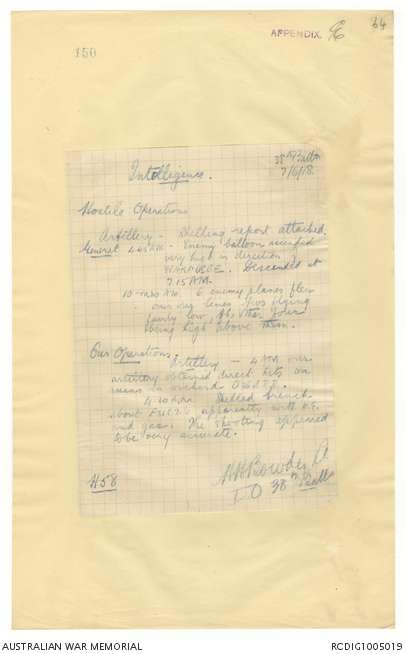 APPENDIX. E 64
150
38th Battn
7/6/18.
Intelligence.
Hostile Operations
Artillery - Shelling report attached.
General 4.45 AM - Enemy balloon ascended
very high in direction of
WARFUSEE. Descended at
7.15 AM.
10- AM 6 enemy planes flew
over our lines. Two flying
fairly low, the other four
being high above them.
Our Operations.
Artillery - 4 AM our
artillery obtained direct hits on
in orchard
4.10 AM. Shelled trench
about apparently with H.E.
and gas. The shooting appeared
to be very accurate.
H58
Lt
I O 38th Battn
AUSTRALIAN WAR MEMORIAL
RCDIG1005019